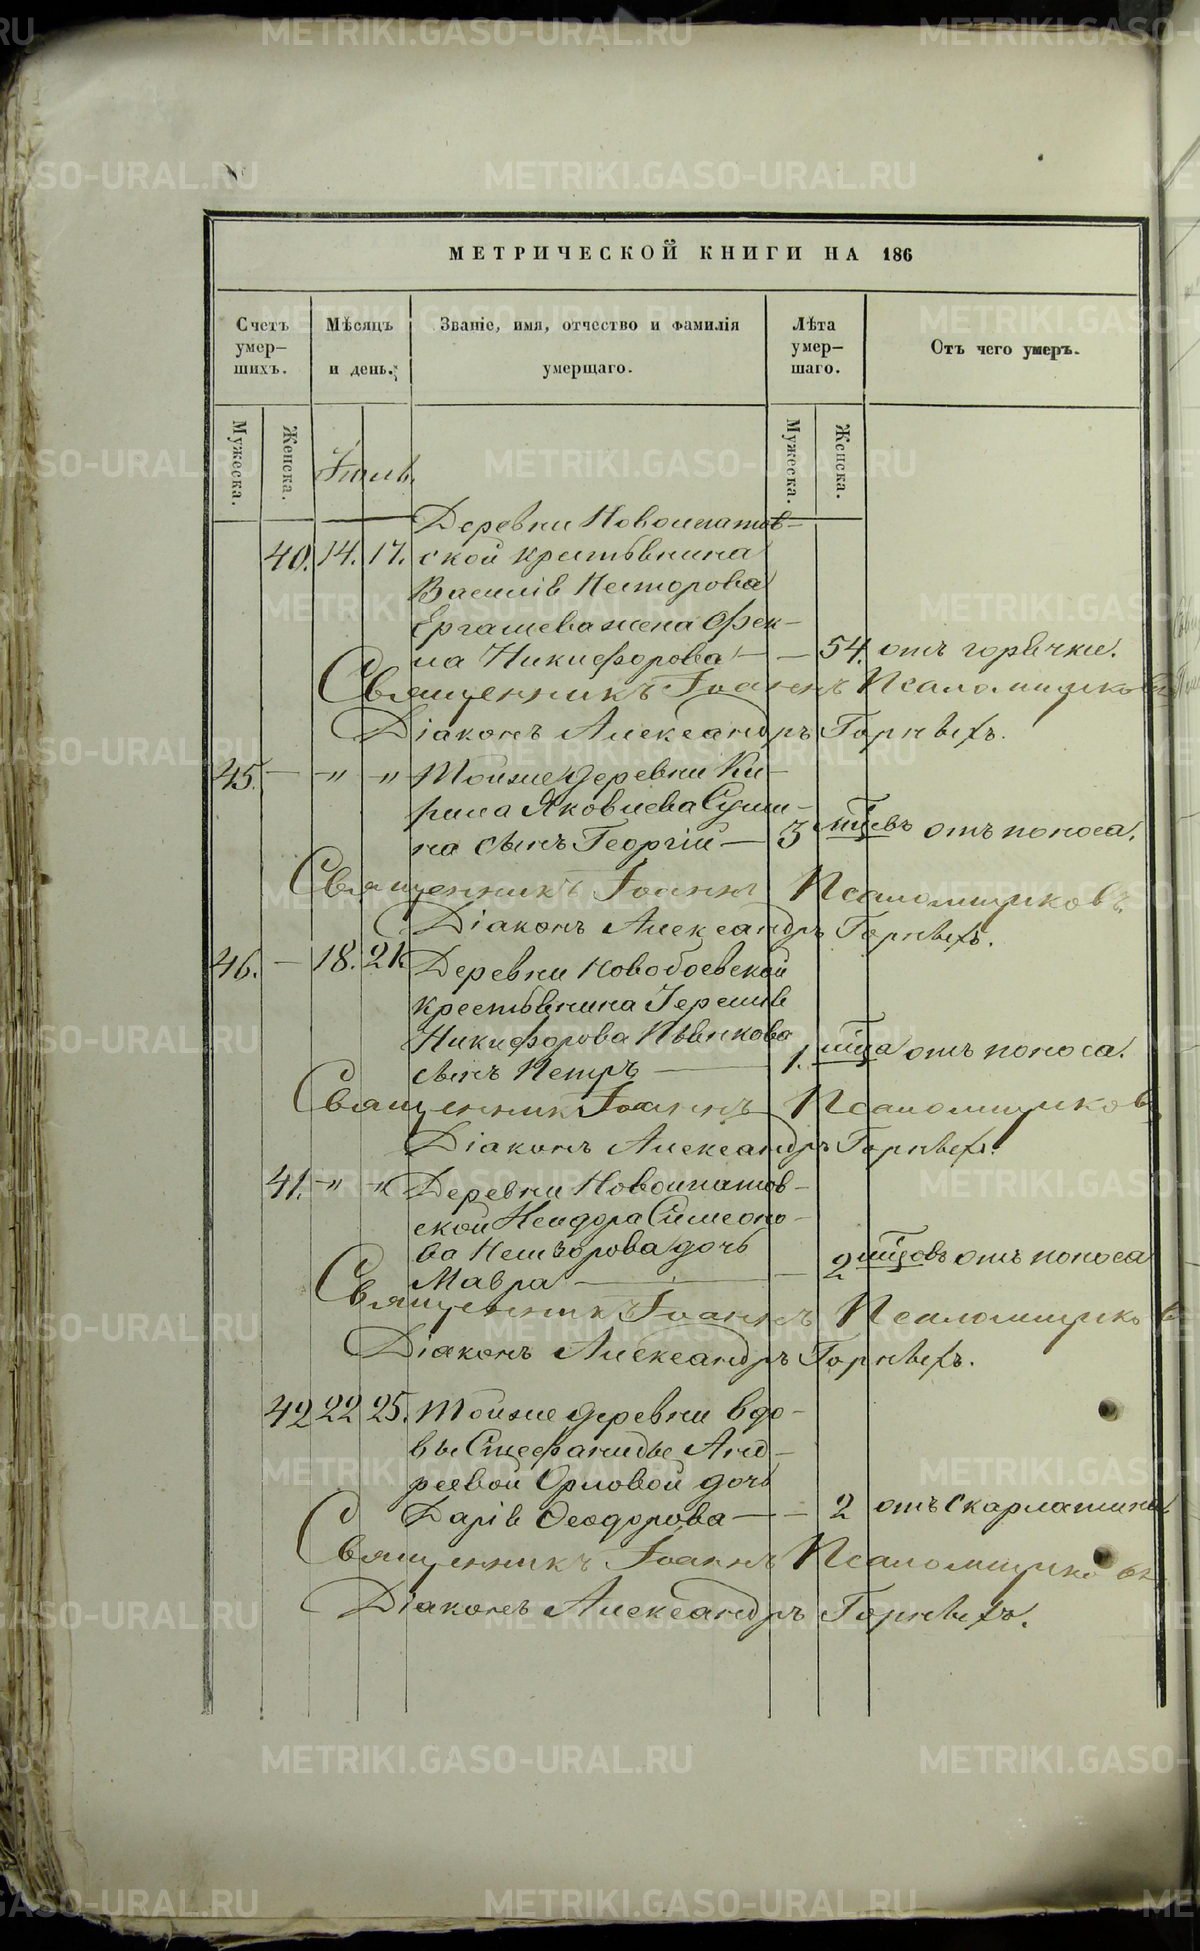 МЕТРИЧЕСКОЙ КНИГИ НА 186
Счетъ умер– шихъ.
Мѣсяцъ и день.
Званіе, имя, отчество и фамилія умерщаго.
Лѣта умер– шаго.
Отъ чего умеръ.
Мужеска.
Женска.
Мужеска.
Женска.
Іюль.
Деревни Новоипатов–
40. 14. 17. ской крестьянина
Василія Несторова
Ергашева жена Фек–
ла Никифорова — — 54. отъ горячки.
Священникъ Іоаннъ Псаломщиковъ
Діаконъ Александръ Горныхъ.
45. — " " Тойже деревни Ки–
рила Яковлева Сунги–
на сынъ Георгій — 3 мцѣвъ отъ поноса.
Священникъ Іоаннъ Псаломщиковъ.
Діаконъ Александръ Горныхъ.
46. — 18. 21. Деревни Новобоевской
крестьянина Іереміи
Никифорова Пьянкова
сынъ Петръ — 1. мца отъ поноса.
Священникъ Іоаннъ Псаломщиковъ
Діаконъ Александръ Горныхъ.
41. " " Деревни Новоипатов–
ской Неидора Симеоно–
ва дочь
Мавра — 2 мцовъ отъ поноса
Священникъ Іоаннъ Псаломщиковъ
Діаконъ Александръ Горныхъ.
42 22 25. Тойже деревни вдо–
вы Стефаниды Анд–
реевой Орловой дочь
Дарія Ѳеодорова — — 2 отъ скарлатины
Священникъ Іоаннъ Псаломщиковъ
Діаконъ Александръ Горныхъ.
METRIKI.GASO-URAL.RU